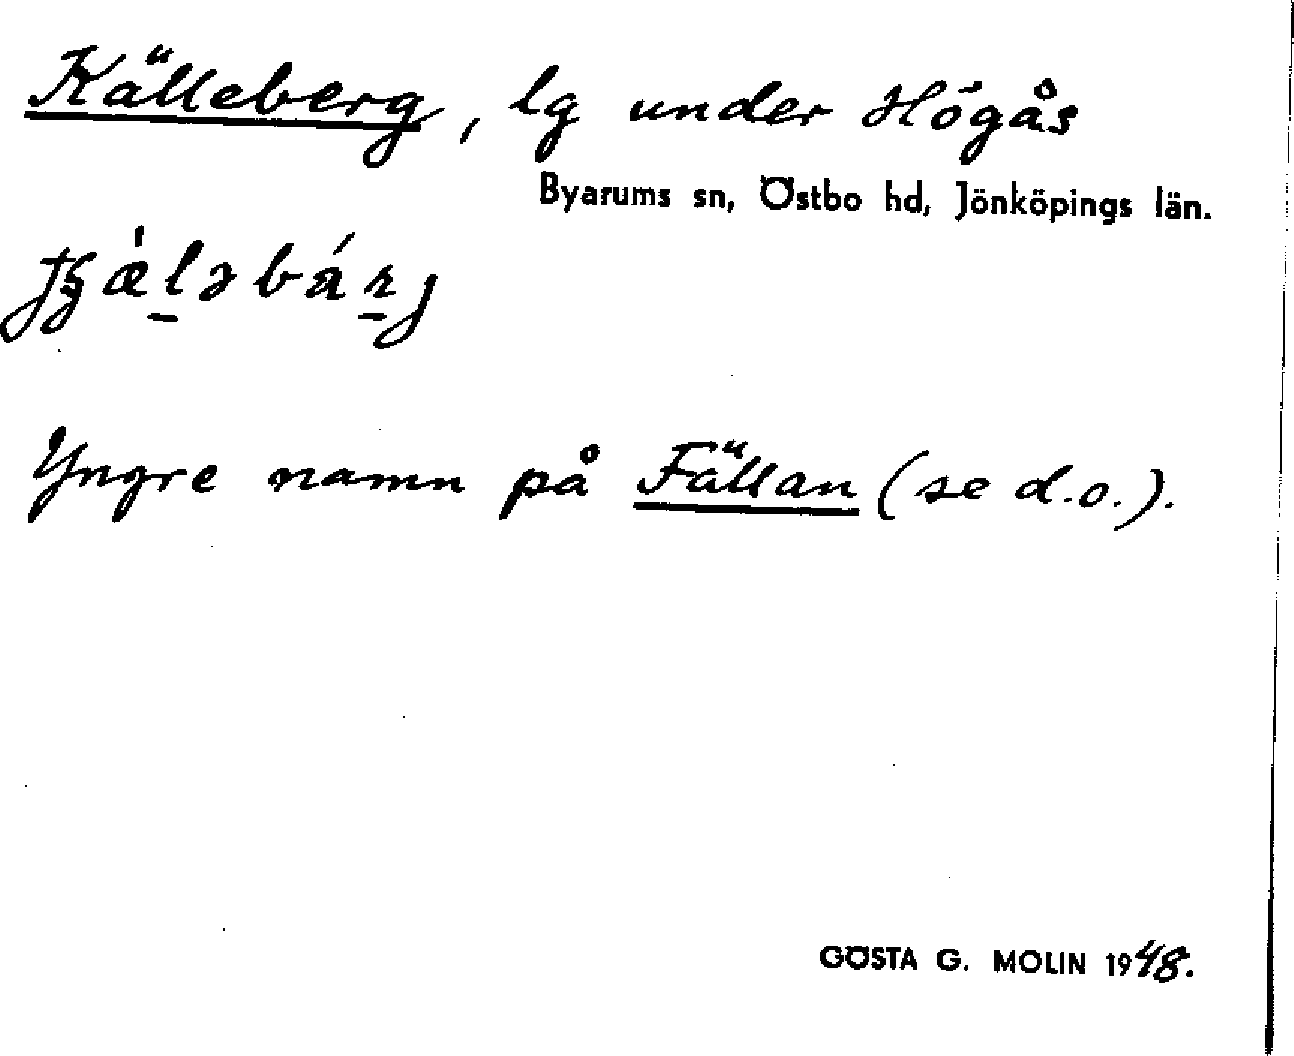 Källeberg, lg under Högås
Byarums sn, Östbo hd, Jönköpings län.
Yngre namn på Fällan (se d.o.).
GÖSTA G. MOLIN 1948.